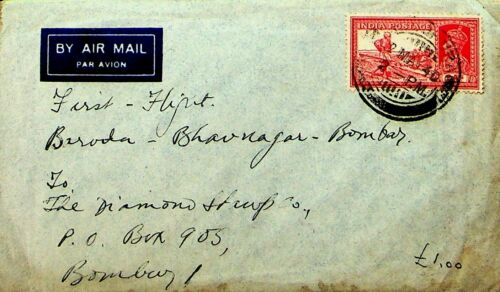 BY AIR MAIL
PAR AVION
INDIA POSTAGE
First - Flight.
Baroda - Bhavnagar - Bombay.
To
The Diamond Stamp Co.,
P. O. Box 905,
Bombay 1
£1.00